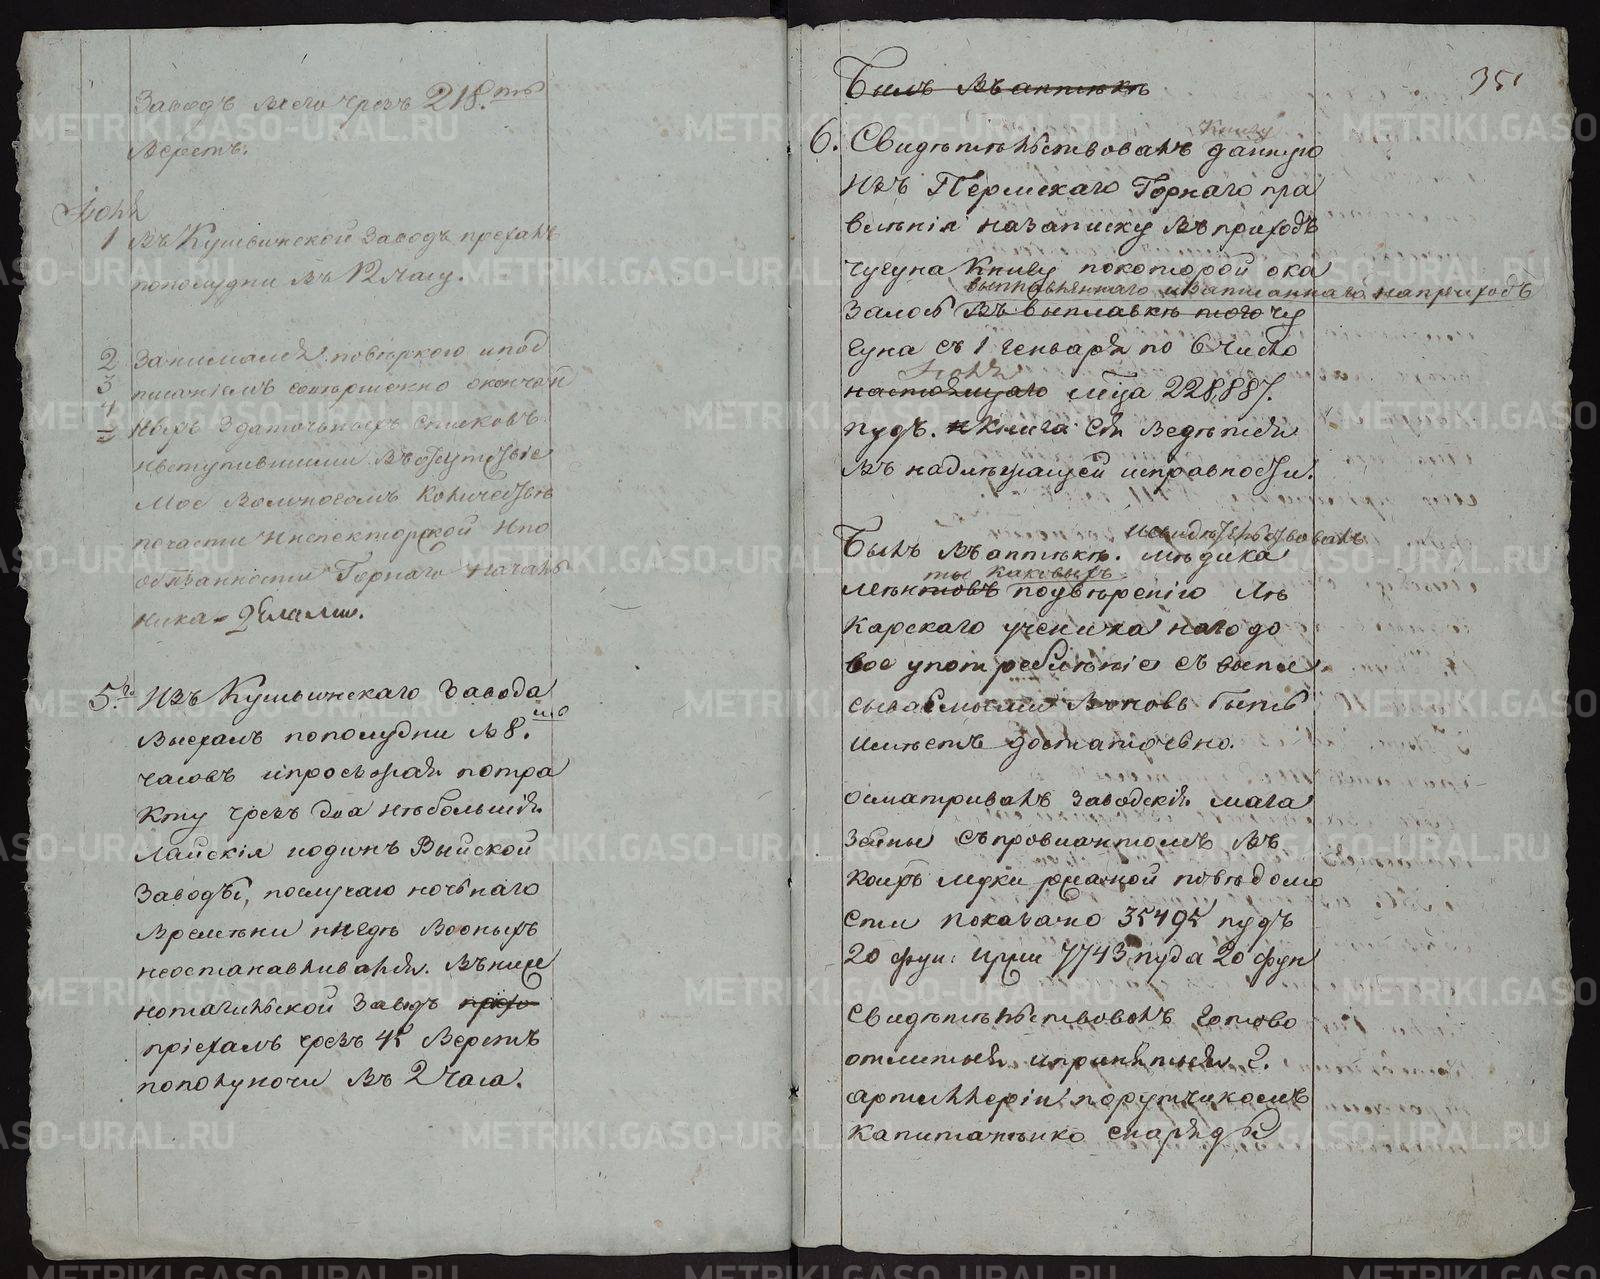 Заводъ всего чрезъ 218.ть
верстъ.
Іюня
1 Въ Кушвинской заводъ пріехалъ
пополудни въ 12 часу.
2 Занимался повѣркою и под
3 писаніемъ совершенно окончен
4 ныхъ здаточныхъ списковъ
наступившими въ отсутствіе
мое количествѣ
по части инспекторской и по
обязанности Горнаго началь
ника дѣлами.
5.го Изъ Кушвинскаго завода
выехалъ пополудни въ 8.мь
часовъ и проезжая потра
кту чрезъ два небольшія
Лайскія и одинъ Выйской
заводы, по случаю ночьнаго
времени нигдѣ в оныхъ
неостанавливался. Въ Ниж
нотагильской заводъ прiхо
пріехалъ чрезъ 45 верстъ
пополуночи въ 2 часа.
351
Былъ въ аптекѣ
6. Свидѣтельствовалъ данную
Книгу
изъ Пермскаго Горнаго пра
вленія на записку въ приходъ
чугуна книгу по которой ока
выплавленнаго и записаннаго на приходъ
залось въ выплавкѣ того чу
гуна съ 1 генваря по 6 число
Іюня
настоящаго м-ца 228,887.
пудъ. и книга Ся ведется
въ надлежащей исправности.
и свидѣтельствовалъ
Былъ въ аптекѣ. медика
ты каковыхъ
ментовъ по увѣренію ле
карскаго ученика на годо
вое употребленіе съ выпи
сываемыми вновь быть
имѣетъ достаточьно.
Осматривалъ заводскія мага
зейны съ провиантомъ въ
коихъ муки ржаной по вѣдомо
сти показано 35495 пудъ
20 фун: и ржи 7743 пуда 20 фун
Свидѣтельствовалъ готово
отлитыя и принятыя г.
артиллеріи порутчикомъ
Капитаненко снаряды